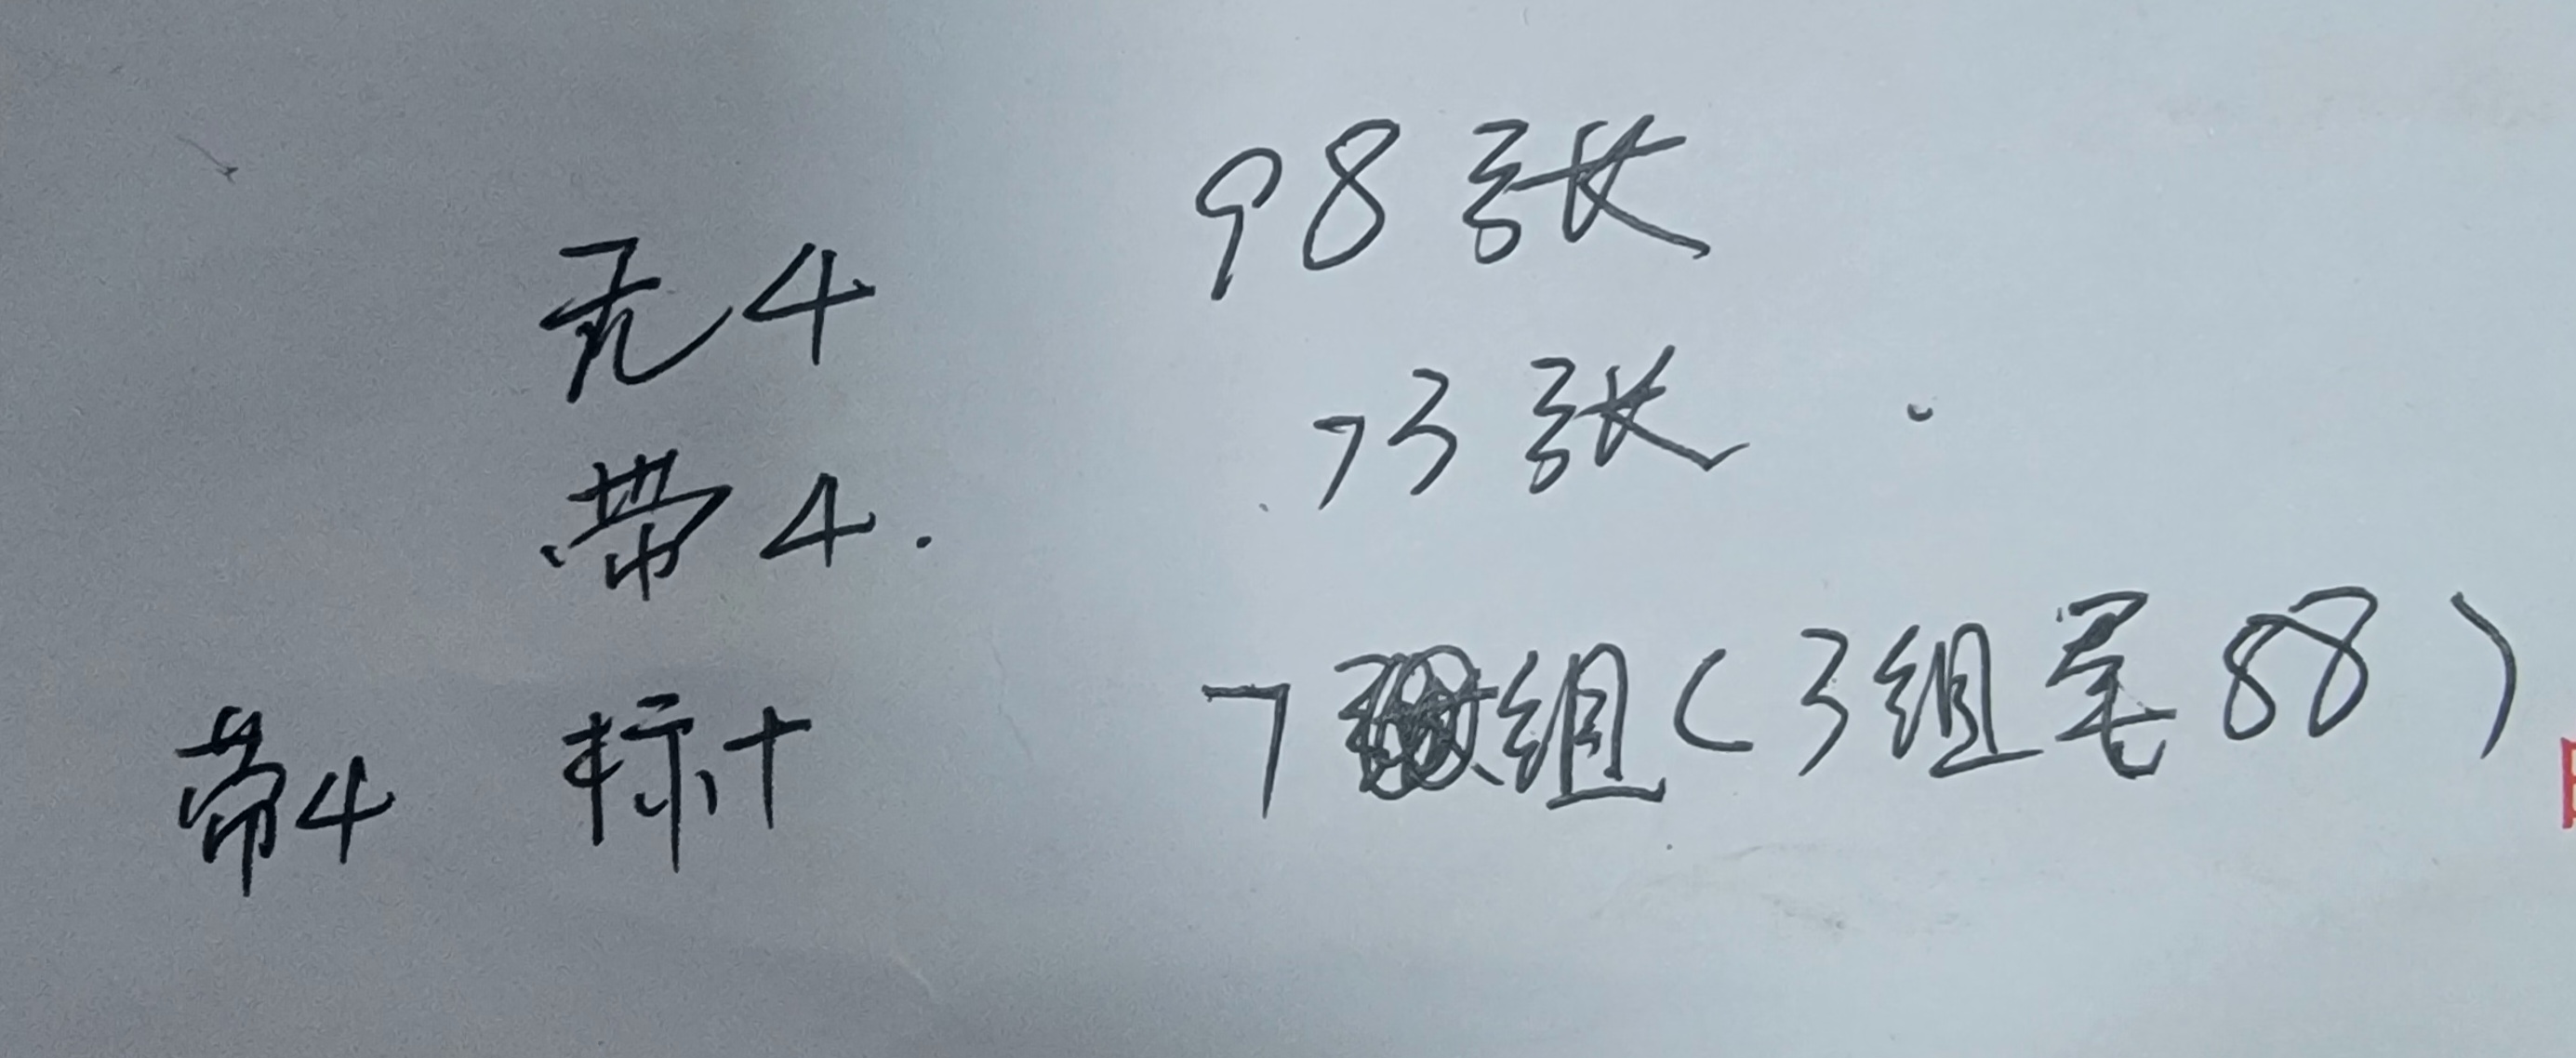 无4 98张
带4. 73张
带4 标十 7组(3组尾88)